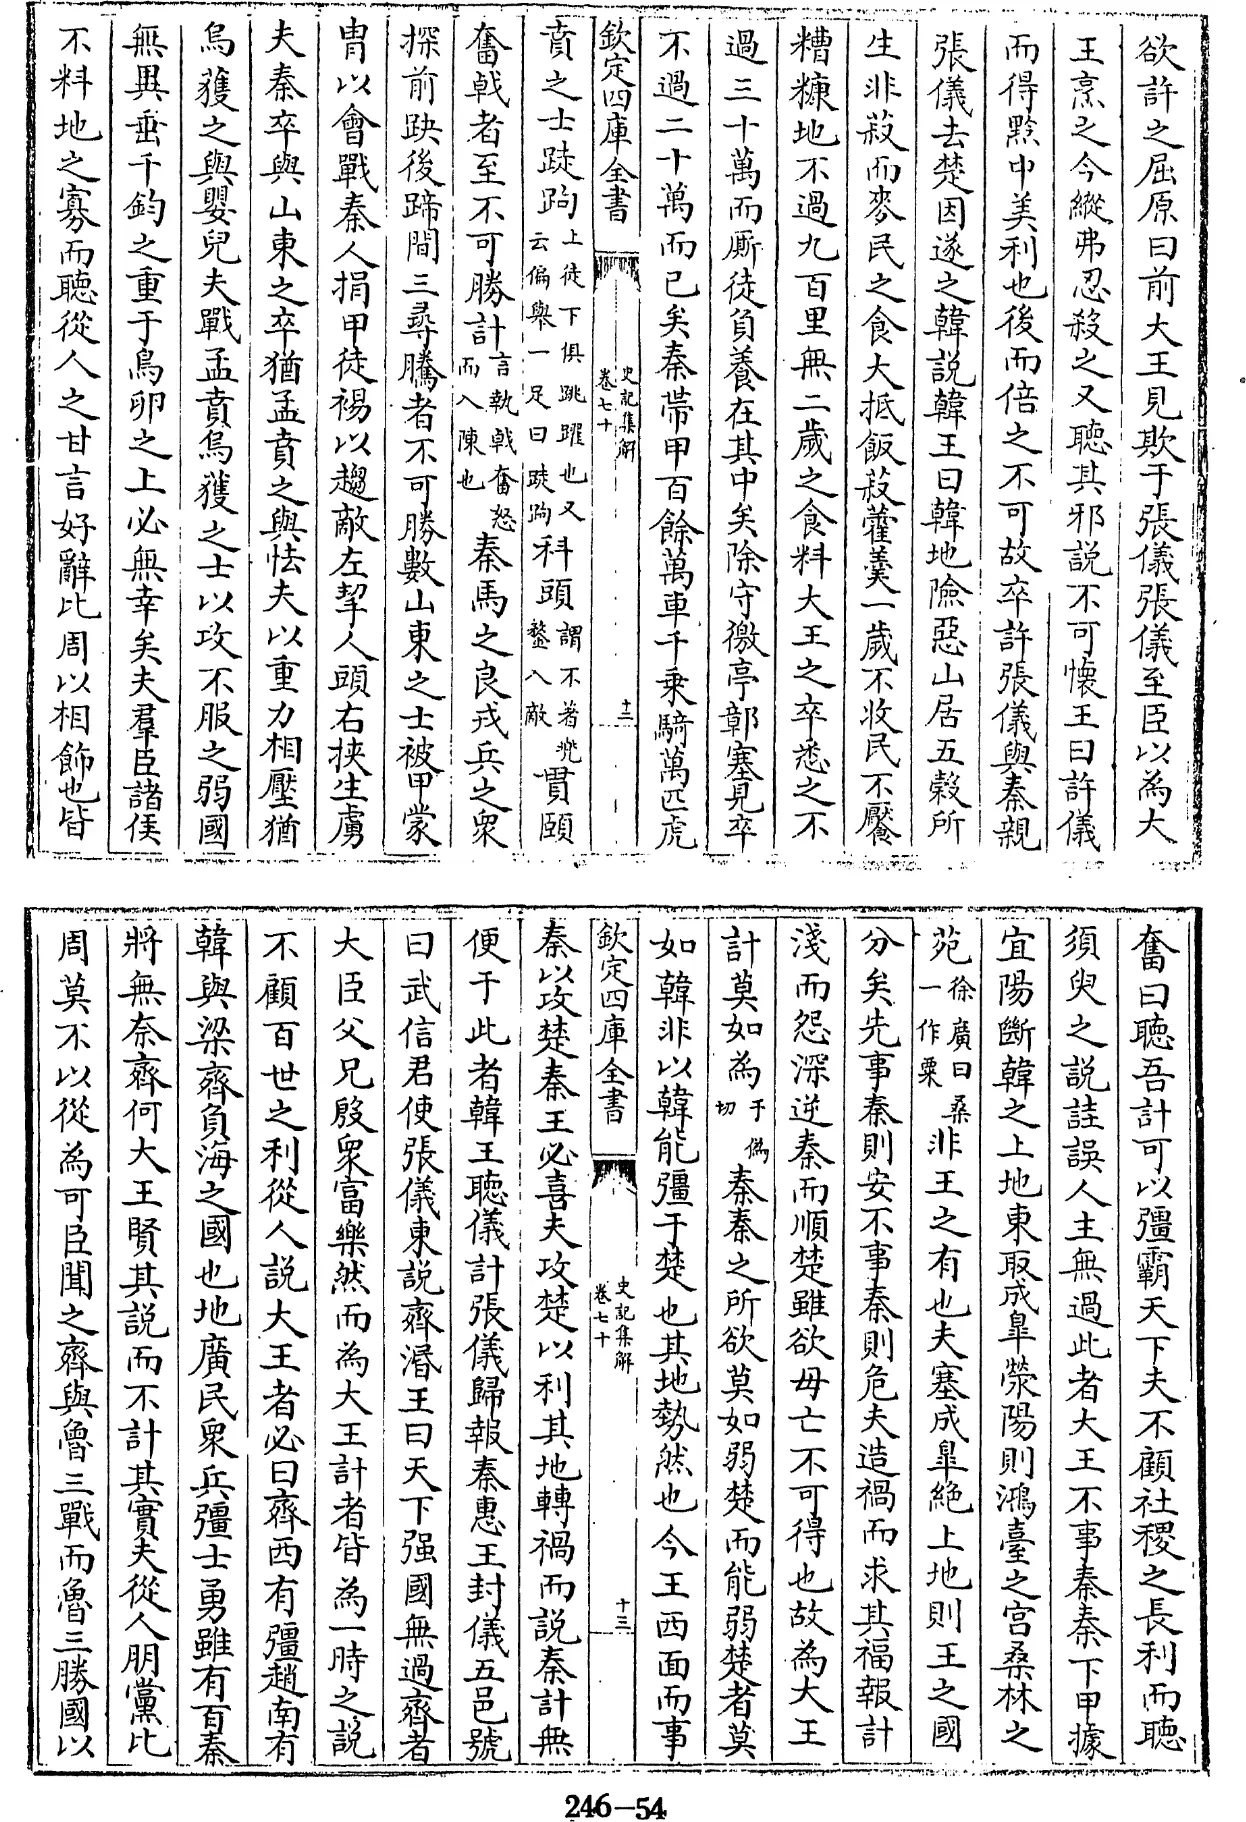 欲許之屈原曰前大王見欺于張儀張儀至臣以為大
王烹之今縱弗忍殺之又聽其邪說不可懷王曰許儀
而得黔中美利也後而倍之不可故卒許張儀與秦親
張儀去楚因遂之韓說韓王曰韓地險惡山居五穀所
生非菽而麥民之食大抵飯菽藿羹一歲不收民不饜
糟糠地不過九百里無二歲之食料大王之卒悉之不
過三十萬而厮徒負養在其中矣除守徼亭鄣塞見卒
不過二十萬而已矣秦帶甲百餘萬車千乗騎萬匹虎
欽定四庫全書
史記集解
卷七十
十二
賁之士跿跔上徒下俱跳躍也又云偏舉一足曰跿跔科頭謂不著兠鍪入敵貫頤
奮戟者至不可勝計言執戟奮怒而入陳也秦馬之良戎兵之衆
探前趹後蹄間三尋騰者不可勝數山東之士被甲蒙
胄以會戰秦人捐甲徒裼以趨敵左挈人頭右挾生虜
夫秦卒與山東之卒猶孟賁之與怯夫以重力相壓猶
烏獲之與嬰兒夫戰孟賁烏獲之士以攻不服之弱國
無異垂千鈞之重于鳥卵之上必無幸矣夫羣臣諸侯
不料地之寡而聽從人之甘言好辭比周以相飾也皆
奮曰聽吾計可以彊霸天下夫不顧社稷之長利而聽
須臾之說詿誤人主無過此者大王不事秦秦下甲據
宜陽斷韓之上地東取成皐滎陽則鴻臺之宫桑林之
苑徐廣曰桑一作栗非王之有也夫塞成皐絶上地則王之國
分矣先事秦則安不事秦則危夫造禍而求其福報計
淺而怨深逆秦而順楚雖欲毋亡不可得也故為大王
計莫如為于偽切秦秦之所欲莫如弱楚而能弱楚者莫
如韓非以韓能彊于楚也其地勢然也今王西面而事
欽定四庫全書
史記集解
卷七十
十三
秦以攻楚秦王必喜夫攻楚以利其地轉禍而說秦計無
便于此者韓王聽儀計張儀歸報秦惠王封儀五邑號
曰武信君使張儀東說齊湣王曰天下强國無過齊者
大臣父兄殷衆富樂然而為大王計者皆為一時之說
不顧百世之利從人說大王者必曰齊西有彊趙南有
韓與梁齊負海之國也地廣民衆兵彊士勇雖有百秦
將無奈齊何大王賢其說而不計其實夫從人朋黨比
周莫不以從為可臣聞之齊與魯三戰而魯三勝國以
246-54